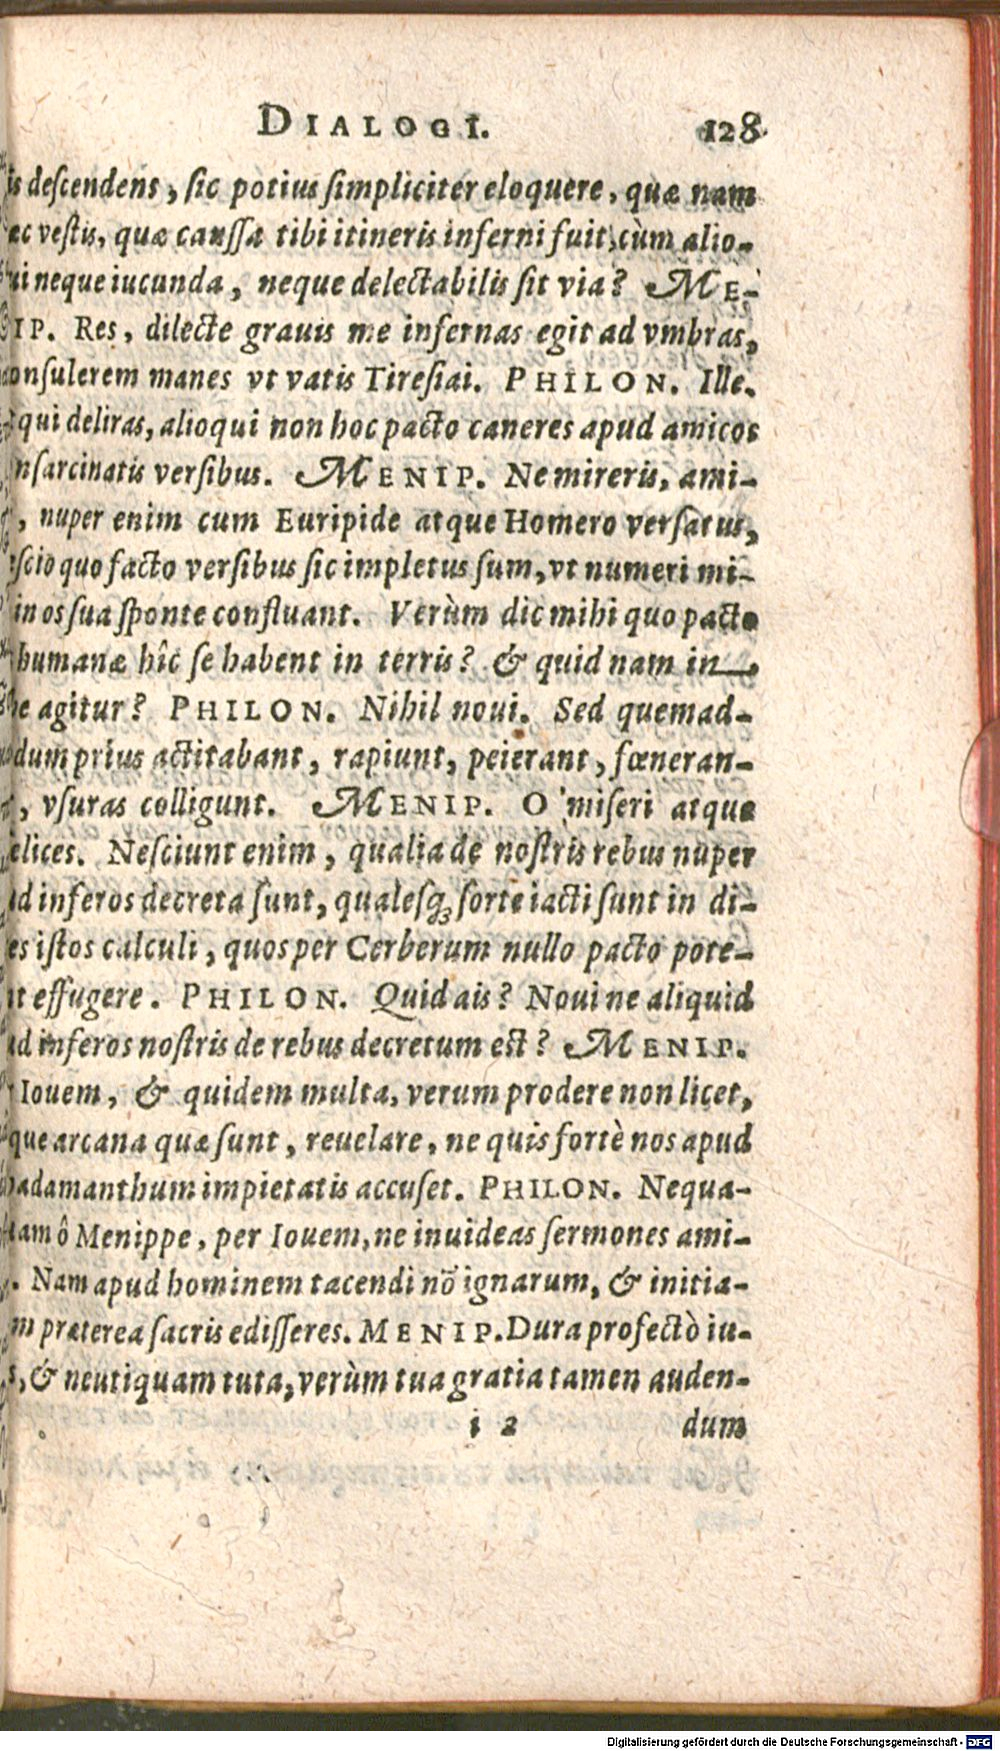 DIALOGI. 128
is descendens, sic potius simpliciter eloquere, quæ nam
æc vestis, quæ caussa tibi itineris inferni fuit, cùm alio-
ui neque iucunda, neque delectabilis sit via? ME-
IP. Res, dilecte grauis me infernas egit ad vmbras,
onsulerem manes vt vatis Tiresiai. PHILON. Ille.
qui deliras, alioqui non hoc pacto caneres apud amicos
nsarcinatis versibus. MENIP. Ne mireris, ami-
, nuper enim cum Euripide atque Homero versatus,
scio quo facto versibus sic impletus sum, vt numeri mi-
in os sua sponte confluant. Verùm dic mihi quo pacto
humanæ hîc se habent in terris? & quid nam in
e agitur? PHILON. Nihil noui. Sed quemad-
dum prius actitabant, rapiunt, peierant, fœneran-
, vsuras colligunt. MENIP. O miseri atque
elices. Nesciunt enim, qualia de nostris rebus nuper
d inferos decreta sunt, qualesq́; sorte iacti sunt in di-
es istos calculi, quos per Cerberum nullo pacto pote-
t effugere. PHILON. Quid ais? Noui ne aliquid
d inferos nostris de rebus decretum est? MENIP.
Iouem, & quidem multa, verum prodere non licet,
que arcana quæ sunt, reuelare, ne quis fortè nos apud
adamanthum impietatis accuset. PHILON. Nequa-
am ô Menippe, per Iouem, ne inuideas sermones ami-
. Nam apud hominem tacendi nō ignarum, & initia-
m præterea sacris edisseres. MENIP. Dura profectò iu-
s, & neutiquam tuta, verùm tua gratia tamen auden-
i 2 dum
Digitalisierung gefördert durch die Deutsche Forschungsgemeinschaft - DFG